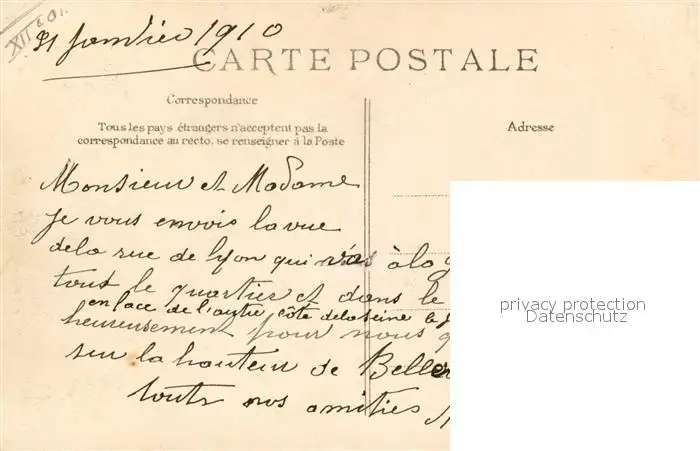 XII
31 janvier 1910
CARTE POSTALE
Correspondance
Tous les pays étrangers n'acceptent pas la
correspondance au recto, se renseigner à la Poste
Adresse
Monsieur et Madame
je vous envois la vue
de la rue de Lyon qui vas à la g
tout le quartier et dans le
en face de l'autre côté de la seine le
heureusement pour nous q
sur la hauteur de Belle
touts nos amitiés
privacy protection
Datenschutz